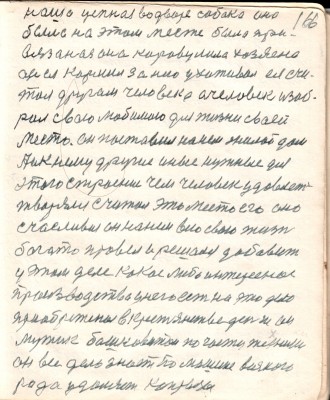 166
наша цепная водворе собака она
была на этом месте была при
вязаная она караулила хозяена
он ея кормил за нею ухаживал ея счи
тая другом человека а человек изоб
рал свою любимаю для жизни своей
место. он поставил на нем жилой дом
А к нему другие и ные нужные для
этого строение чем человек удовлет
творялся считая это место его оно
счасливая он на нем всю свою жизнь
богато провел и решался добавить
у этом деле какое либо интересное
производства у него есть на это дело
приобретения в крестьянстве
мужик
он все дело знает по машине всякого
рода